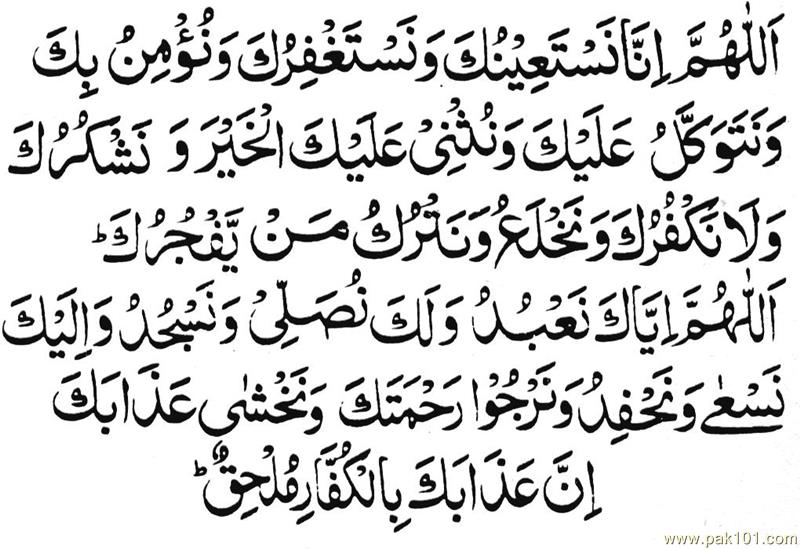 اَللّٰهُمَّ اِنَّا نَسْتَعِيْنُكَ وَنَسْتَغْفِرُكَ وَنُؤْمِنُ بِكَ
وَنَتَوَكَّلُ عَلَيْكَ وَنُثْنِىْ عَلَيْكَ الْخَيْرَ وَ نَشْكُرُكَ
وَلَا نَكْفُرُكَ وَنَخْلَعُ وَنَتْرُكُ مَنْ يَّفْجُرُكَ ط
اَللّٰهُمَّ اِيَّاكَ نَعْبُدُ وَلَكَ نُصَلِّىْ وَنَسْجُدُ وَاِلَيْكَ
نَسْعٰى وَنَحْفِدُ وَنَرْجُوْا رَحْمَتَكَ وَنَخْشٰى عَذَابَكَ
اِنَّ عَذَابَكَ بِالْكُفَّارِ مُلْحِقٌ ط
www.pak101.com